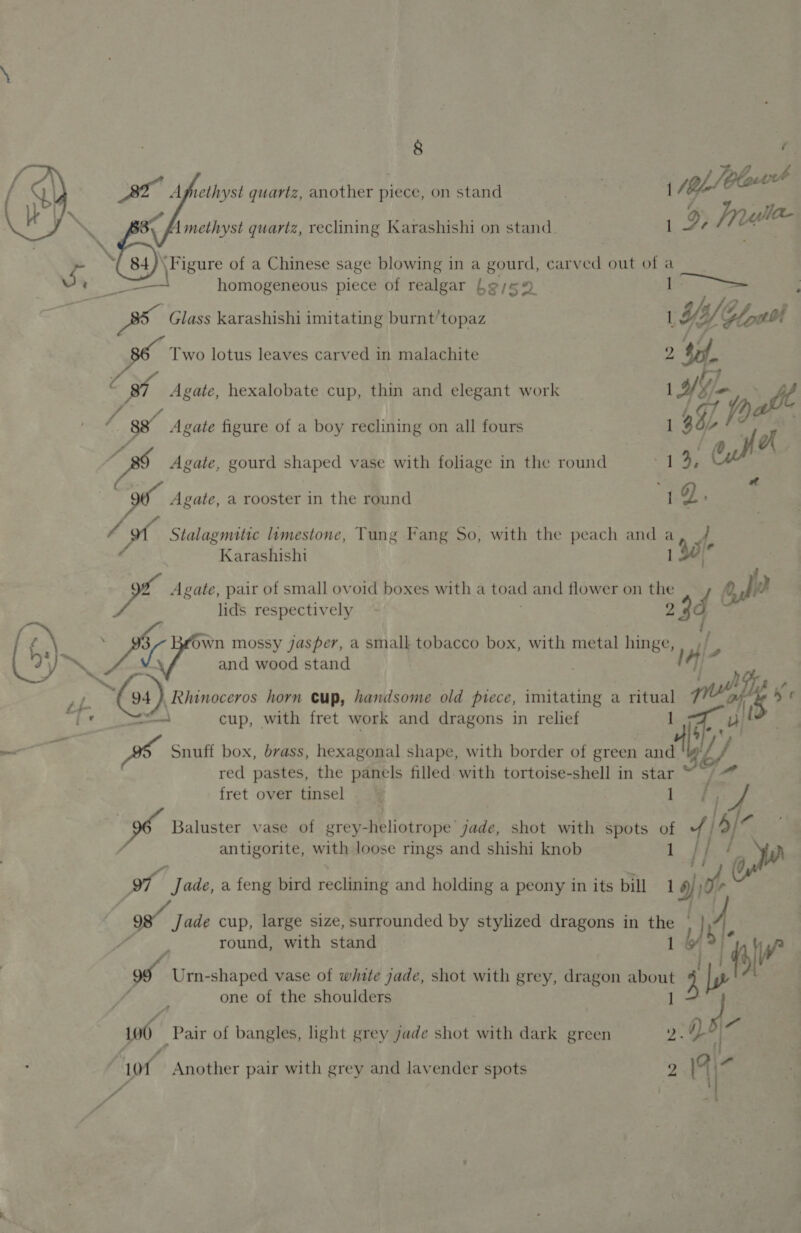 8
82 Amethyst quartz, another piece, on stand 1
83 Amethyst quartz, reclining Karashishi on stand 1
84 Figure of a Chinese sage blowing in a gourd, carved out of a
homogeneous piece of realgar 1
85 Glass karashishi imitating burnt topaz 1
86 Two lotus leaves carved in malachite 2
87 Agate, hexalobate cup, thin and elegant work 1
88 Agate figure of a boy reclining on all fours 1
89 Agate, gourd shaped vase with foliage in the round 1
90 Agate, a rooster in the round 1
91 Stalagmitic limestone, Tung Fang So, with the peach and a
Karashishi 1
92 Agate, pair of small ovoid boxes with a toad and flower on the
lids respectively 2
93 Brown mossy jasper, a small tobacco box, with metal hinge,
and wood stand 1
94 Rhinoceros horn cup, handsome old piece, imitating a ritual
cup, with fret work and dragons in relief 1
95 Snuff box, brass, hexagonal shape, with border of green and
red pastes, the panels filled with tortoise-shell in star
fret over tinsel 1
96 Baluster vase of grey-heliotrope jade, shot with spots of
antigorite, with loose rings and shishi knob 1
97 Jade, a feng bird reclining and holding a peony in its bill 1
98 Jade cup, large size, surrounded by stylized dragons in the
round, with stand 1
99 Urn-shaped vase of white jade, shot with grey, dragon about
one of the shoulders 1
100 Pair of bangles, light grey jade shot with dark green 2
101 Another pair with grey and lavender spots 2